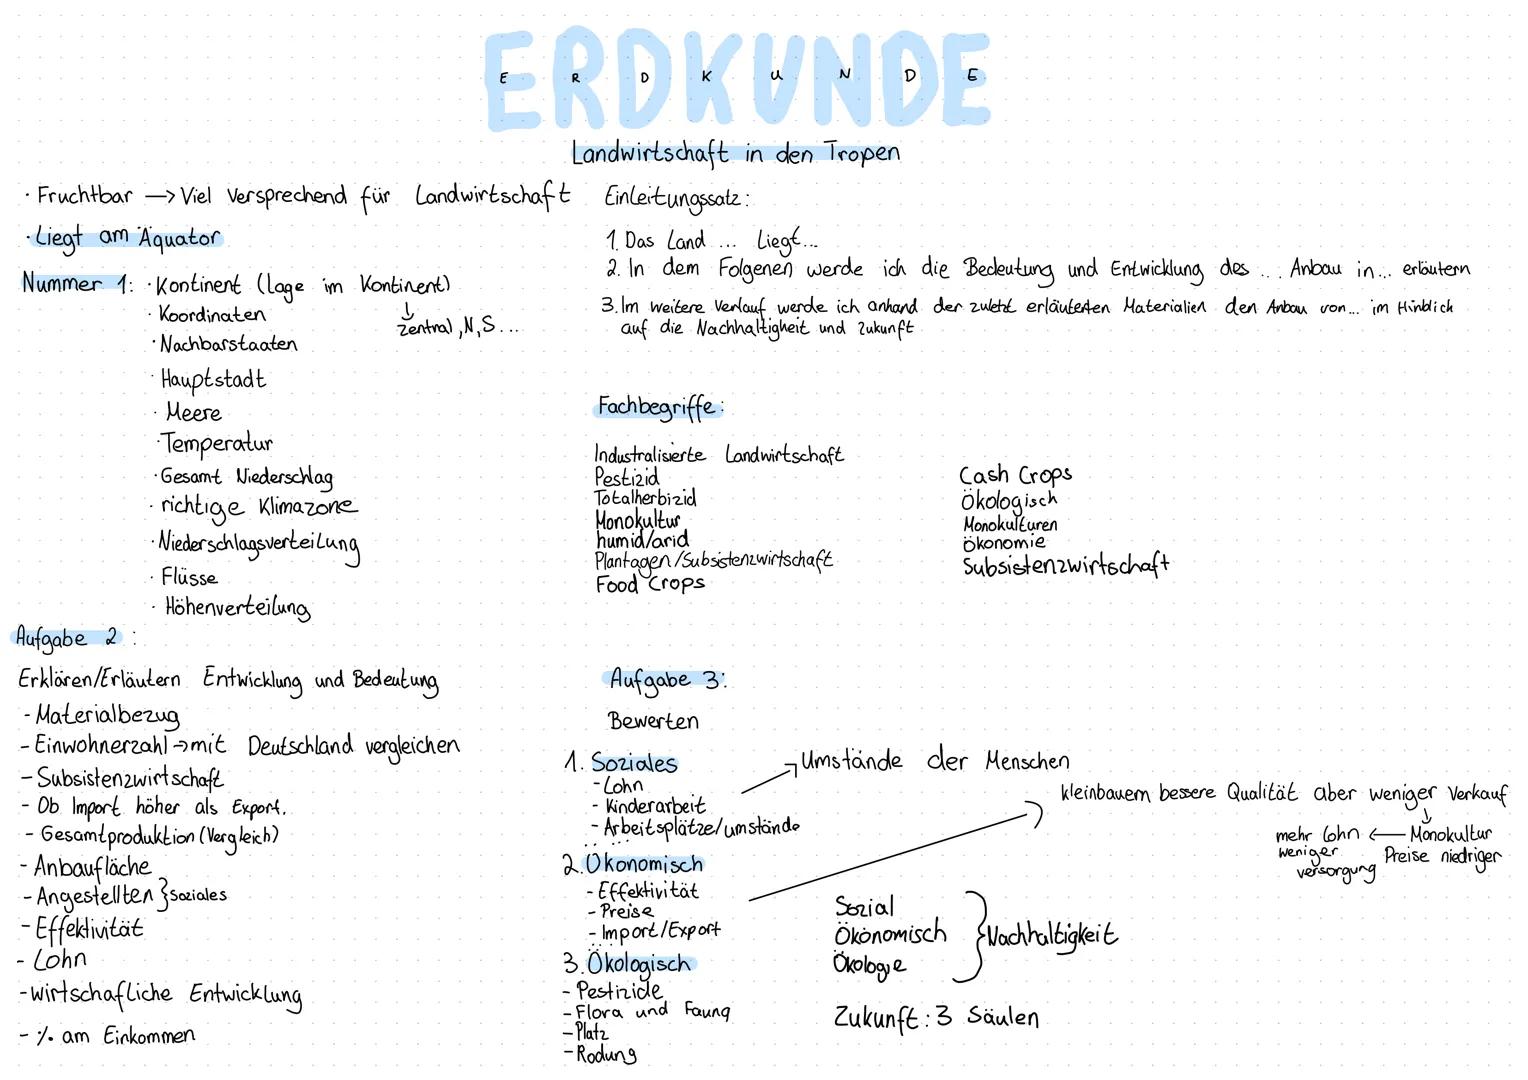 ERDKUNDE
E R D K U N D E
Landwirtschaft in den Tropen
· Fruchtbar → Viel Versprechend für Landwirtschaft
· Liegt am Äquator
Nummer 1: · Kontinent (Lage im Kontinent)
↓
zentral, N, S...
· Koordinaten
· Nachbarstaaten
· Hauptstadt
· Meere
· Temperatur
· Gesamt Niederschlag
· richtige Klimazone
· Niederschlagsverteilung
· Flüsse
· Höhenverteilung
Aufgabe 2 :
Erklären/Erläutern Entwicklung und Bedeutung
- Materialbezug
- Einwohnerzahl → mit Deutschland vergleichen
- Subsistenzwirtschaft
- Ob Import höher als Export.
- Gesamtproduktion (Vergleich)
- Anbaufläche
- Angestellten } Soziales
- Effektivität
- Lohn
- wirtschafliche Entwicklung
- % am Einkommen
Einleitungssatz:
1. Das Land ... Liegt...
2. In dem Folgenen werde ich die Bedeutung und Entwicklung des ... Anbau in... erläutern
3. Im weitere Verlauf werde ich anhand der zuletzt erläuterten Materialien den Anbau von... im Hinblich
auf die Nachhaltigheit und Zukunft
Fachbegriffe:
Industralisierte Landwirtschaft
Pestizid
Totalherbizid
Monokultur
humid/arid
Plantagen/Subsistenzwirtschaft
Food Crops
Cash Crops
Ökologisch
Monokulturen
ökonomie
Subsistenzwirtschaft
Aufgabe 3:
Bewerten
1. Soziales
- Lohn
- Kinderarbeit
- Arbeitsplätze/umstände
→ Umstände der Menschen
2. Ökonomisch
- Effektivität
- Preise
- Import/Export
→ kleinbauern bessere Qualität aber weniger Verkauf
↓
mehr Lohn ← Monokultur
weniger Preise niedriger
versorgung
3. Ökologisch
- Pestizide
- Flora und Fauna
- Platz
- Rodung
Sozial
Ökonomisch } Nachhaltigkeit
Ökologie
Zukunft: 3 Säulen